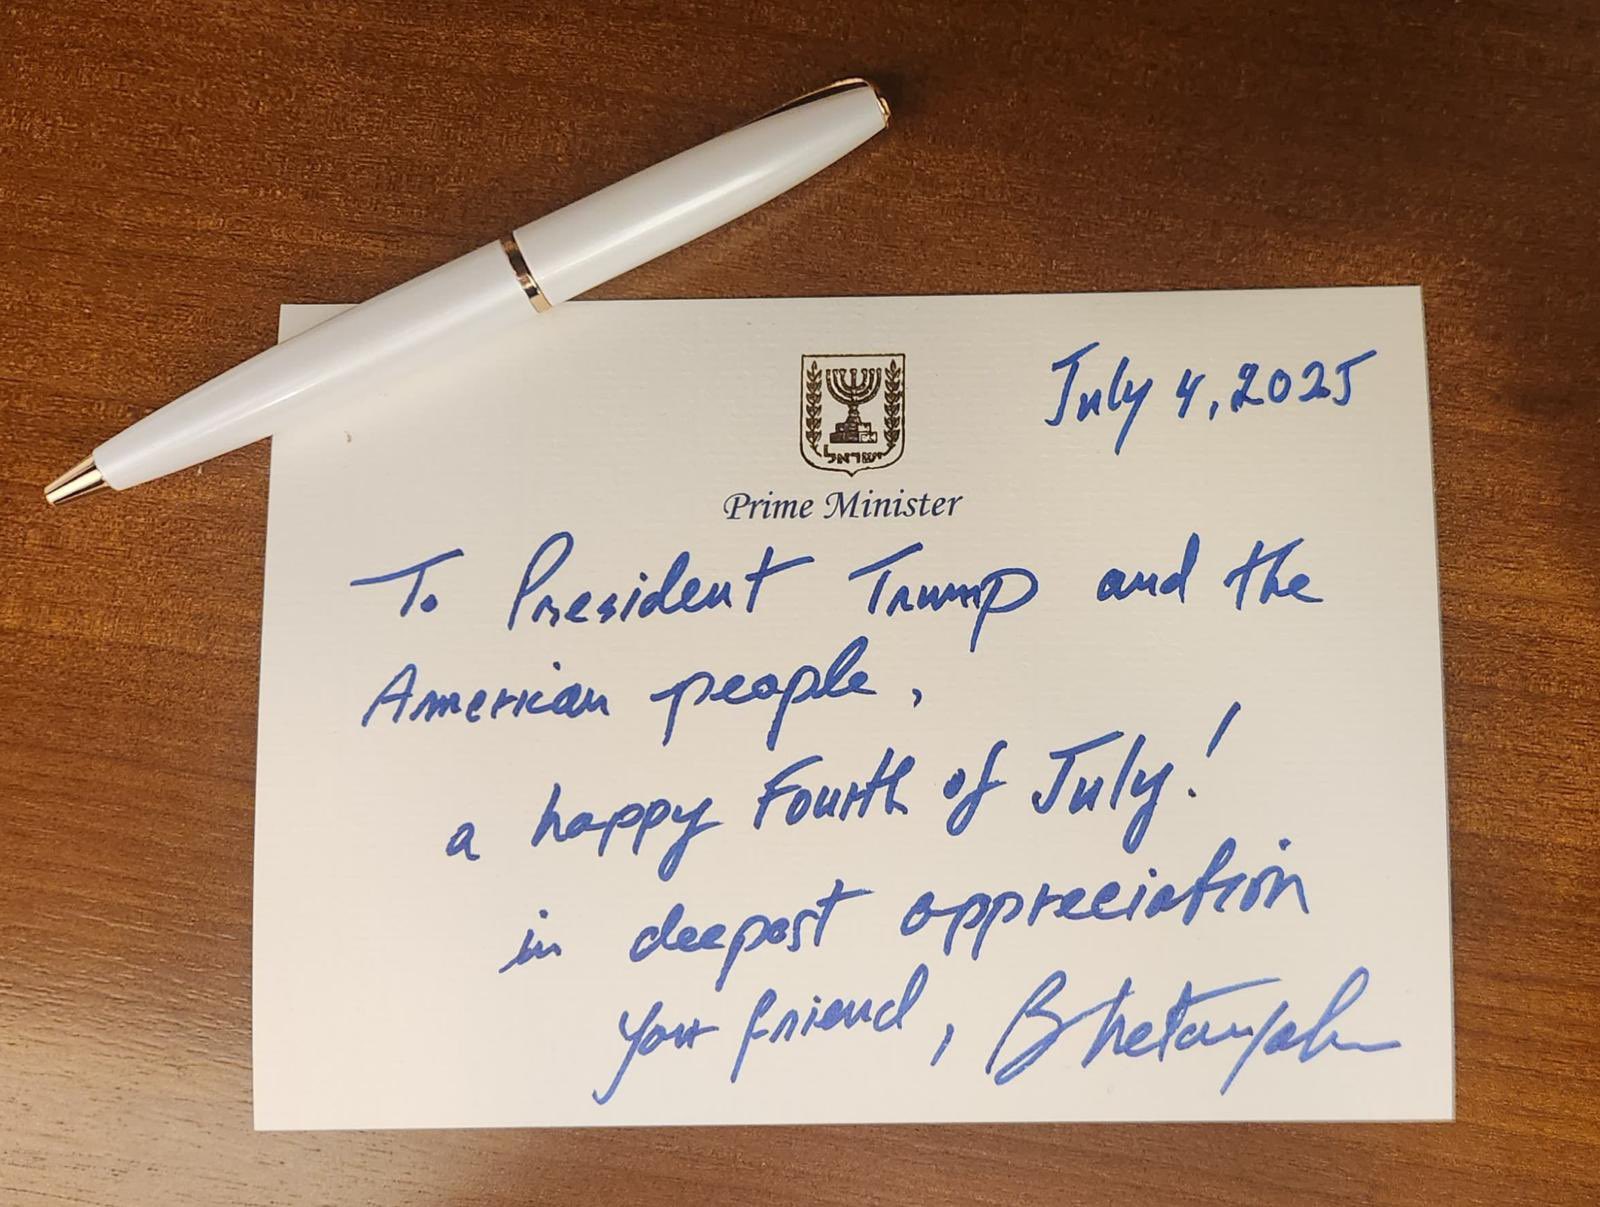 July 4, 2025
ישראל
Prime Minister
To President Trump and the
American people,
a happy Fourth of July!
in deepest appreciation
your friend, BNetanyahu